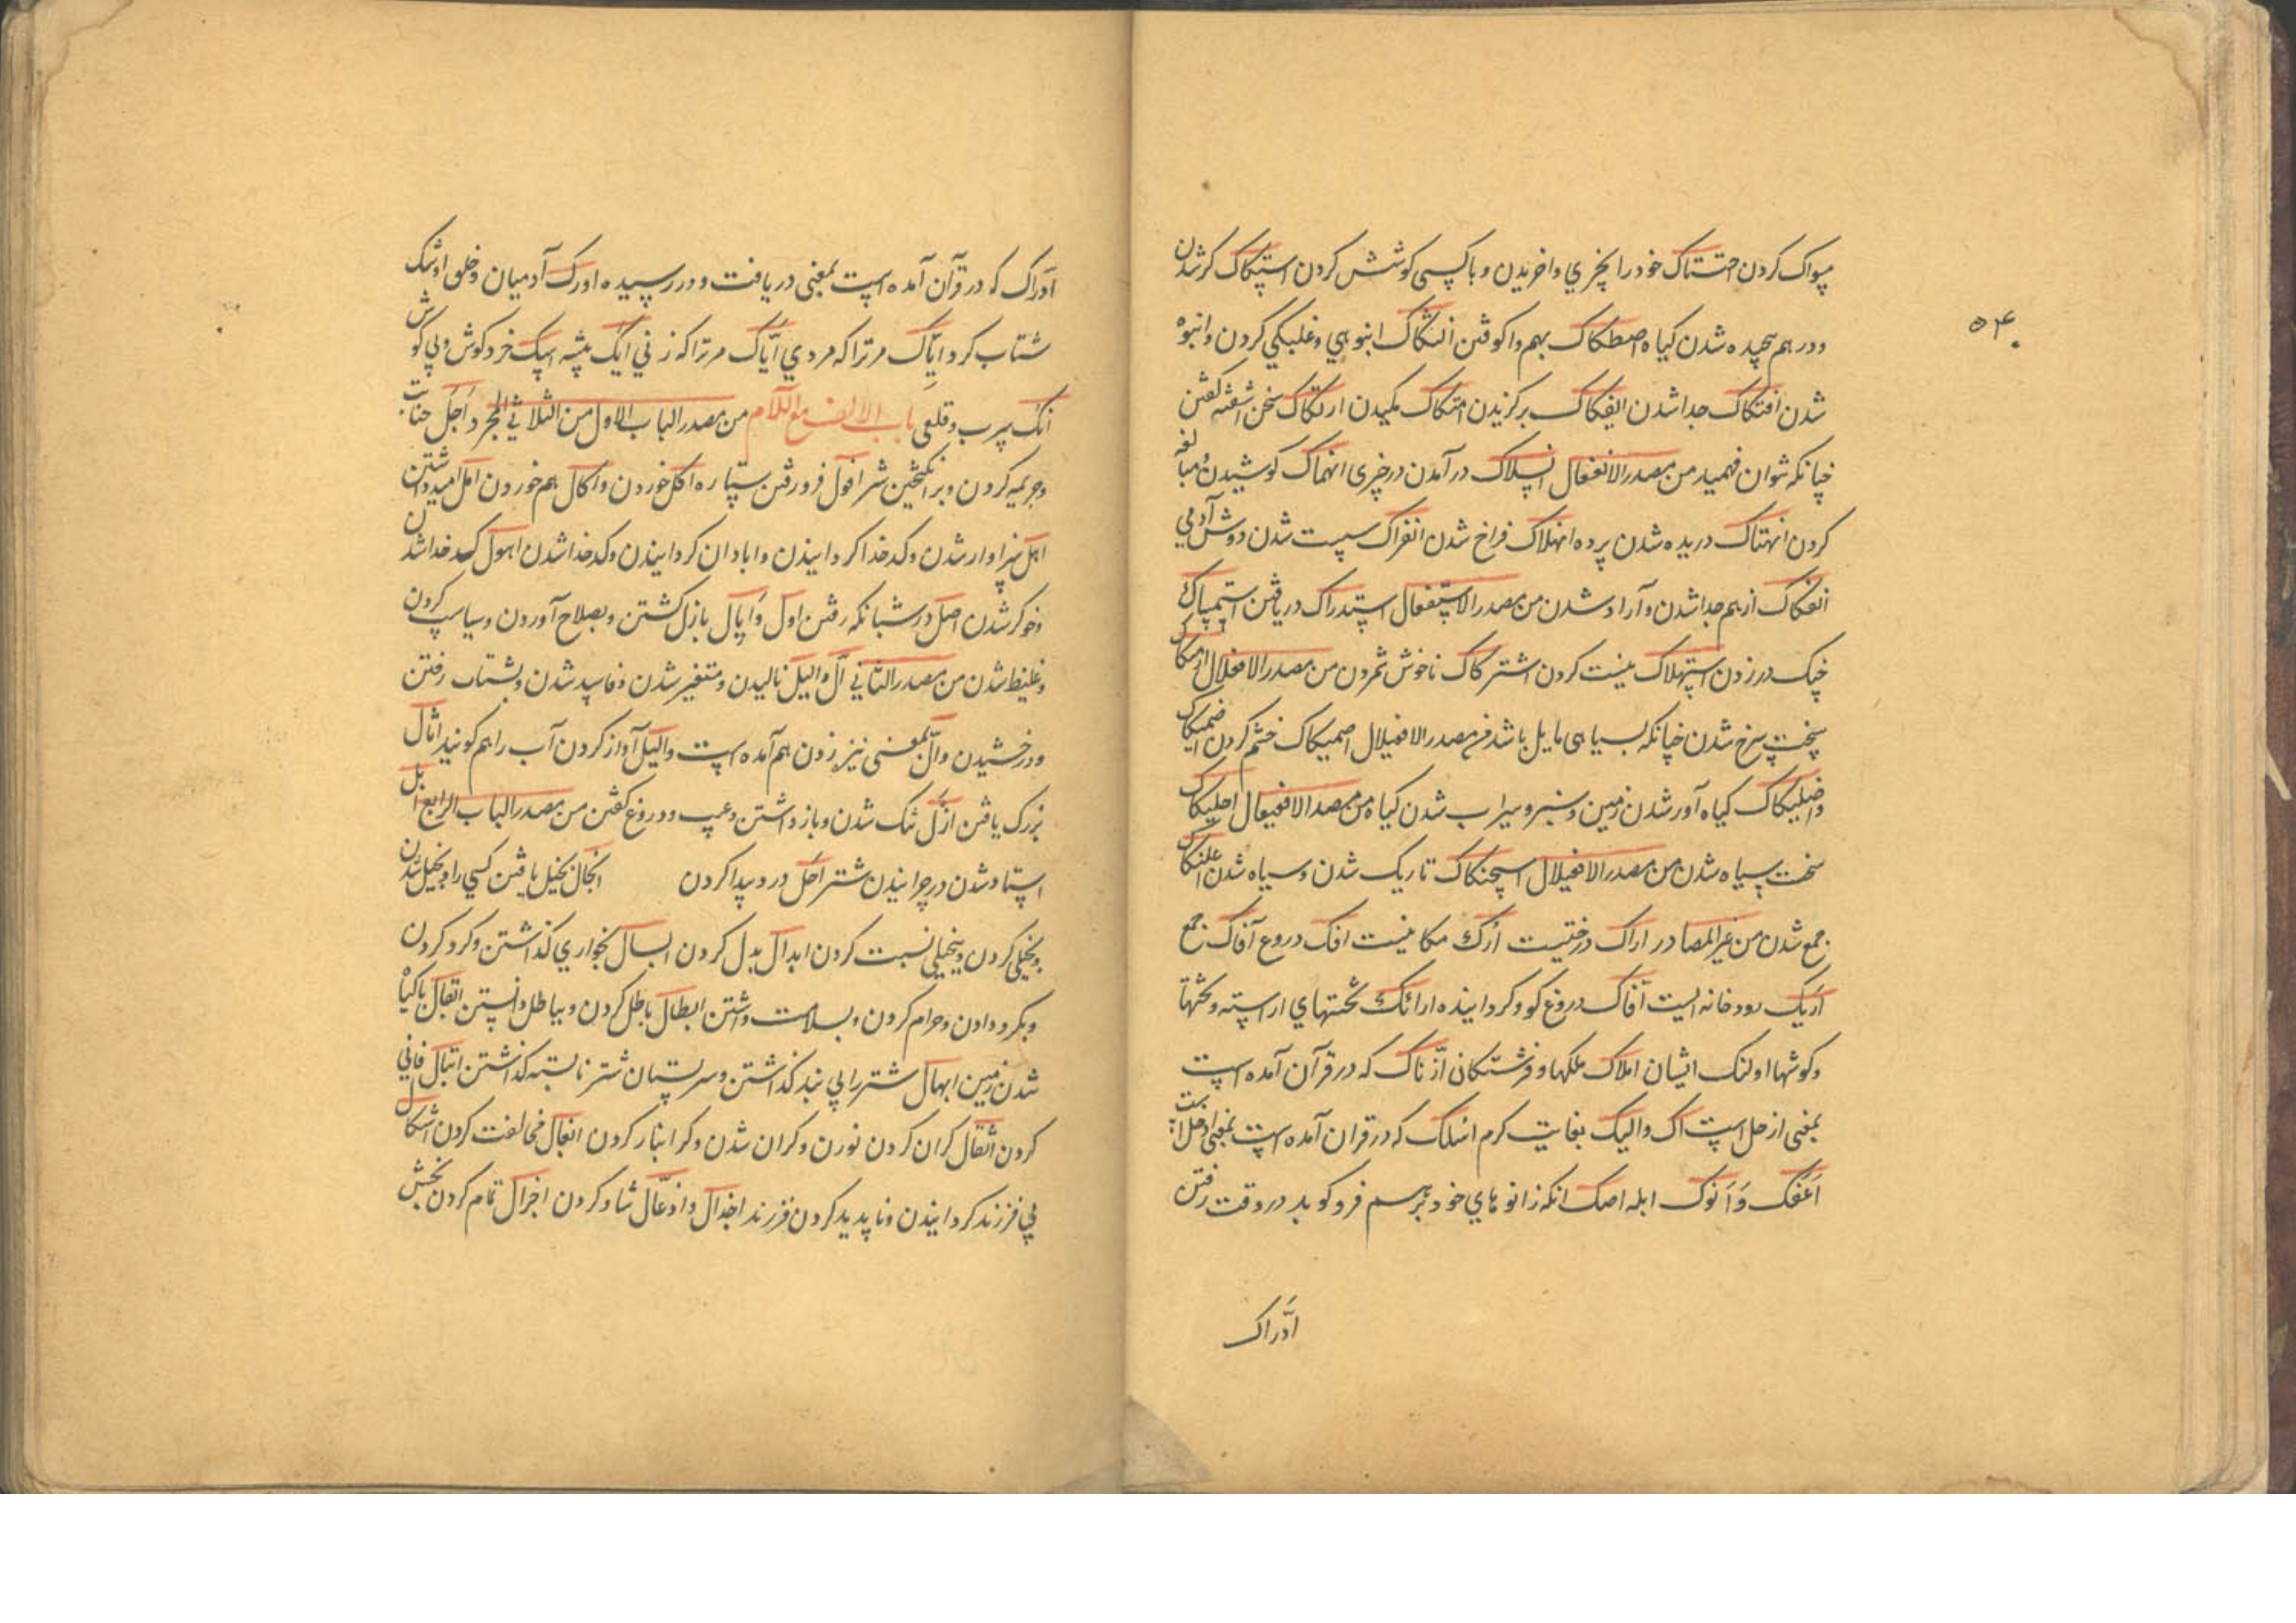 ۵۴
مسواک کردن احتتاک خود را بچیزی واخریدن و با کسی کوشش کردن استکاک کر شدن
و در هم پیچیده شدن کیاه اصطکاک بهم واکوفتن التکاک انبوهی و غلبکی کردن و انبوه
شدن افتکاک جدا شدن ایفکاک برکزیدن امتکاک مکیدن ارتکاک سخن اشفته کفتن
چنانکه نتوان فهمید من مصدر الانفعال انسلاک در آمدن در چیزی انهماک کوشیدن و مبالغه
کردن انهتاک دریده شدن پرده انهلاک فراخ شدن انفراک سست شدن دوش آدمی
انفکاک از هم جدا شدن و آزاد شدن من مصدر الاستفعال استدراک دریافتن استمساک
چنک در زدن استهلاک نیست کردن اشترکاک ناخوش شمردن من مصدر الافعلال ارمکاک
سخت سرخ شدن چنانکه بسیاهی مایل باشد من مصدر الافعیلال اصمیکاک خشم کردن اضمیکاک
واضلیکاک کیاه آور شدن زمین و سبز و سیراب شدن کیاه من مصدر الافعیعال احلیکاک
سخت سیاه شدن من مصدر الافعیلال اسحنکاک تاریک شدن و سیاه شدن اعلنکاک
جمع شدن من غیر المصادر اراک درختیست اُرُک مکانیست افک دروغ آفاک جمع
اَریک رودخانه ایست آفاک دروغ کو و کرداینده ارائک تختهای اراسته و تختها
و کوشها اولئک ایشان املاک ملکها و فرشتکان ادّراک که در قرآن آمده است
بمعنی از حل است اک والیک بغایت کرم اسلک که در قران آمده است بمعنی ادخل است
اَعفَک وَ اَنوک ابله اصک انکه زانوهای خود بر هم فرو کوبد در وقت رفتن
ادَّراک
ادّراک که در قرآن آمده است بمعنی دریافت و در رسیده اورک آدمیان و خلق اوشک
شتاب کرد ایّاک مر ترا که مردی ایّاک مر ترا که زنی ایک بیشه اسک خرد کوش و بی کوش
انک سرب و قلعی باب الالف مع اللام من مصدر الباب الاول من الثلاثی المجرد اَجل جنایت
و جریمه کردن و بر انکیختن شر افول فرو رفتن ستاره اکل خوردن واکال هم خوردن امل امید داشتن
اهل سزاوار شدن و کدخدا کردانیدن و ابادان کردانیدن و کدخدا شدن اهول کدخدا شدن
و خوکر شدن اصل در شبانکه رفتن اول وَ اِیال باز کشتن و بصلاح آوردن و سیاست کردن
و غلیظ شدن من مصدر الثانی ال والیل نالیدن و متغیر شدن و فاسد شدن و بشتاب رفتن
و درخشیدن وال بمعنی نیزه زدن هم آمده است والیل آواز کردن آب را هم کویند اثال
بزرک یافتن ازل تنک شدن و باز داشتن و عیب و دروغ کفتن من مصدر الباب الرابع ابل
استاد شدن در چرانیدن شتر اَجَل درد پیدا کردن ابخال بخیل یافتن کسی را و بخیل شدن
و بخیلی کردن و ببخیلی نسبت کردن ابدال بدل کردن ابسال بخواری کذاشتن و کرو کردن
و بکرو دادن و حرام کردن و بسلامت داشتن ابطال باطل کردن و بباطل دانستن ابقال با کیاه
شدن زمین ابهال شتر را بی بند کذاشتن و سر پستان شتر نابسته کذاشتن اتبال فانی
کردن اثقال کران کردن نوردن و کران شدن و کر انبار کردن اثعال مخالفت کردن اثکال
بی فرزند کردانیدن و ناپدید کردن فرزند اجذال واذعال شاد کردن اجزال تمام کردن بخشش